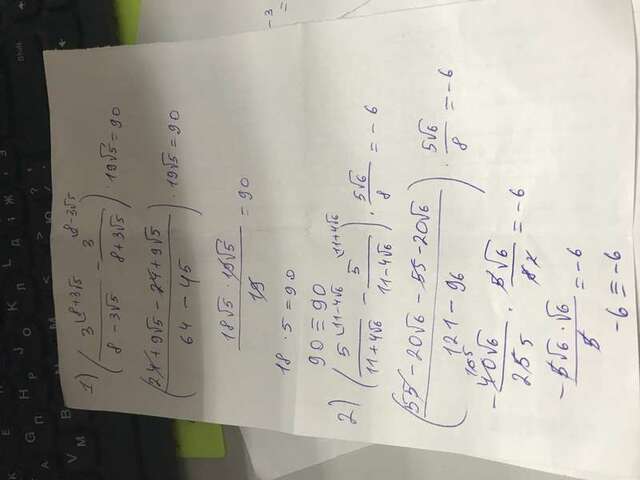 1) (3^{8+3√5}/(8-3√5) - 3^{8-3√5}/(8+3√5)) · 19√5 = 90
((24+9√5-24+9√5)/(64-45)) · 19√5 = 90
(18√5 · 19√5)/19 = 90
18 · 5 = 90
90 ≡ 90
2) (5^{11-4√6}/(11+4√6) - 5^{11+4√6}/(11-4√6)) · 5√6/8 = -6
((55-20√6-55-20√6)/(121-96)) · 5√6/8 = -6
-40√6/25 5 · 5√6/8 = -6
(-5√6 · √6)/5 = -6
-6 ≡ -6